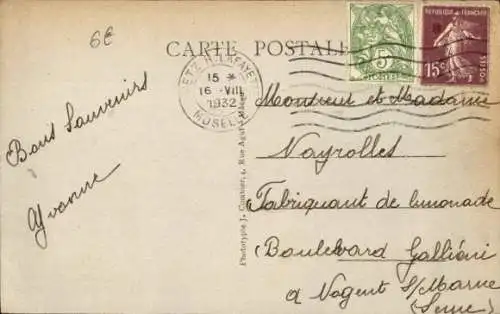 6€
CARTE POSTALE
METZ R. LAFAYETTE
15 *
16 -VIII
1932
MOSELLE
5
REPUBLIQUE FRANÇAISE
15c
POSTES
Bons Souvenirs
Yvonne
Phototypie J.
Monsieur et Madame
Nayrolles
Fabriquant de limonade
Boulevard Galliéni
a Nogent S/Marne
(Seine)